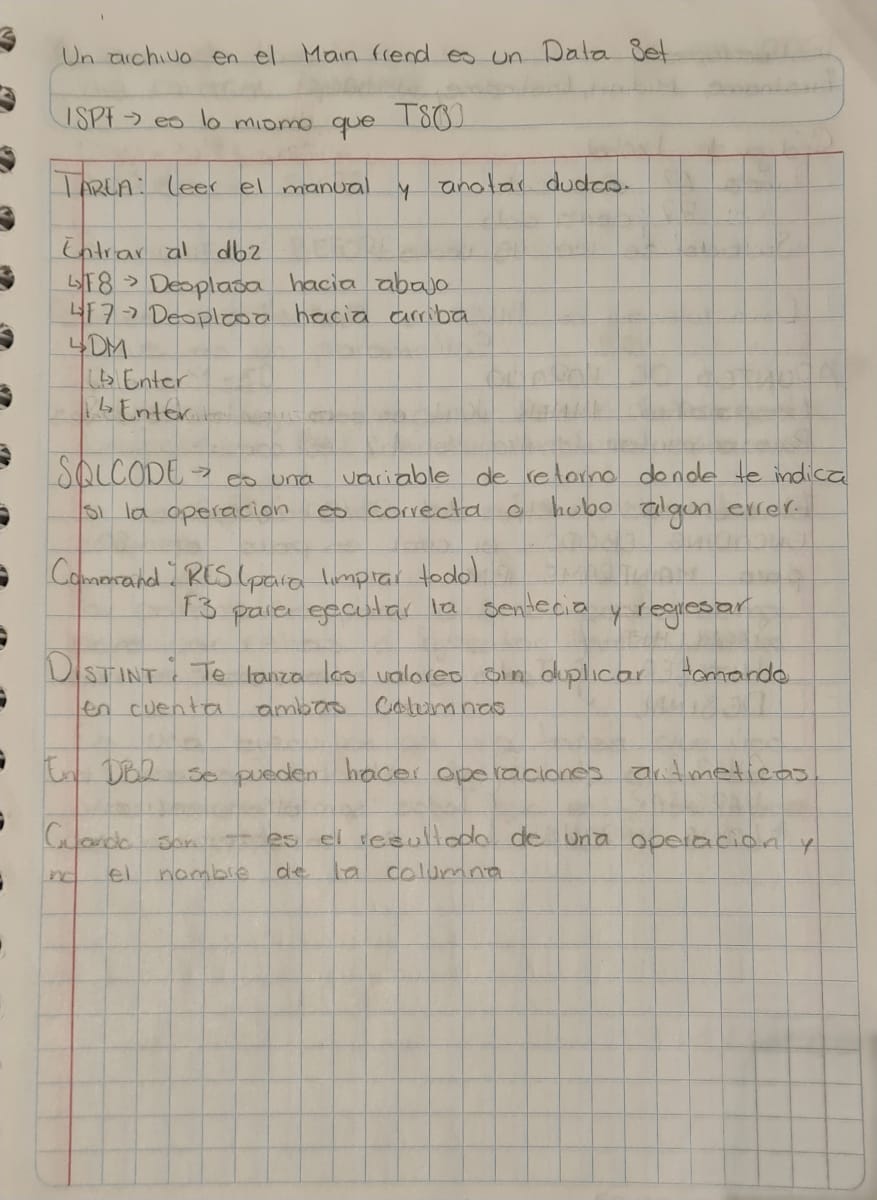 Un archivo en el Main friend es un Data Set
ISPF → es lo mismo que TSO
TAREA: Leer el manual y anotar dudas.
Entrar al db2
↳ F8 → Desplasa hacia abajo
↳ F7 → Desplasa hacia arriba
↳ DM
↳ Enter
↳ Enter
SQLCODE → es una variable de retorno donde te indica
si la operacion es correcta o hubo algun error.
Command: RES (para limpiar todo)
F3 para ejecutar la sentecia y regresar
DISTINT: Te lanza los valores sin duplicar tomando
en cuenta ambas Columnas
En DB2 se pueden hacer operaciones aritmeticas.
Cuando son -- es el resultado de una operación y
no el nombre de la columna